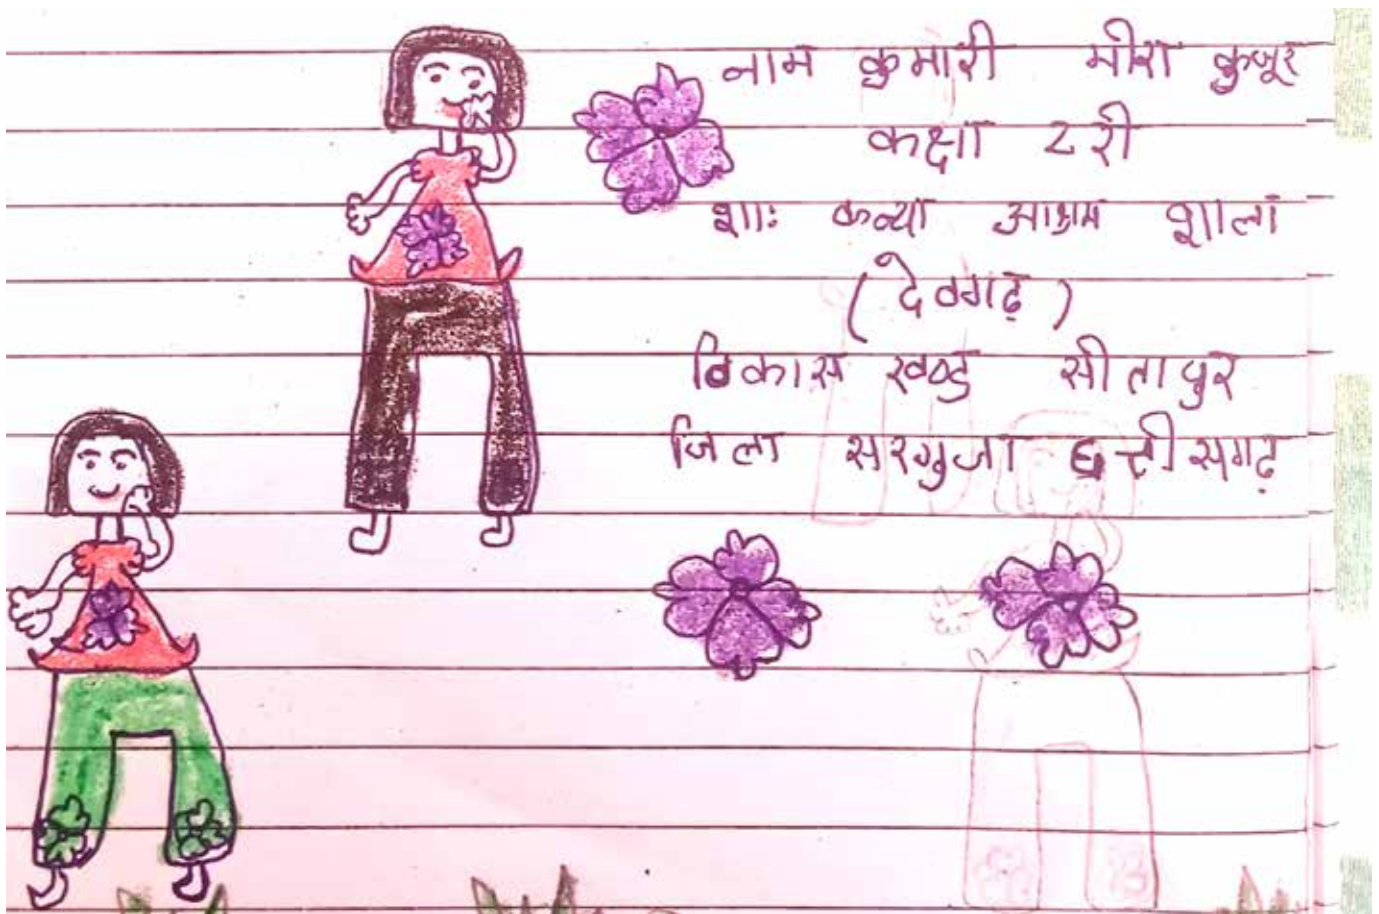 नाम कुमारी मीरा कुजूर
कक्षा 2री
शाः कन्या आश्रम शाला
(देवगढ़)
विकास खण्ड सीतापुर
जिला सरगुजा छत्तीसगढ़